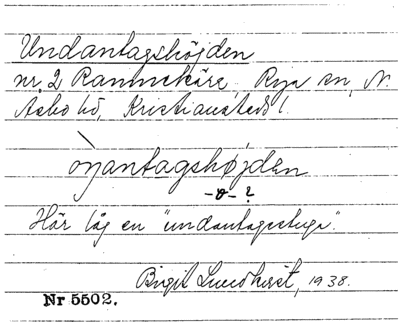 Undantagshöjden
nr 2 Rammekärr, Rya sn, N.
Åsbo hd, Kristianstads l.
òŋantagshøjden
-ɵ- ?
Här låg en "undantagsstuga".
Birgit Lundkvist, 1938.
Nr 5502.